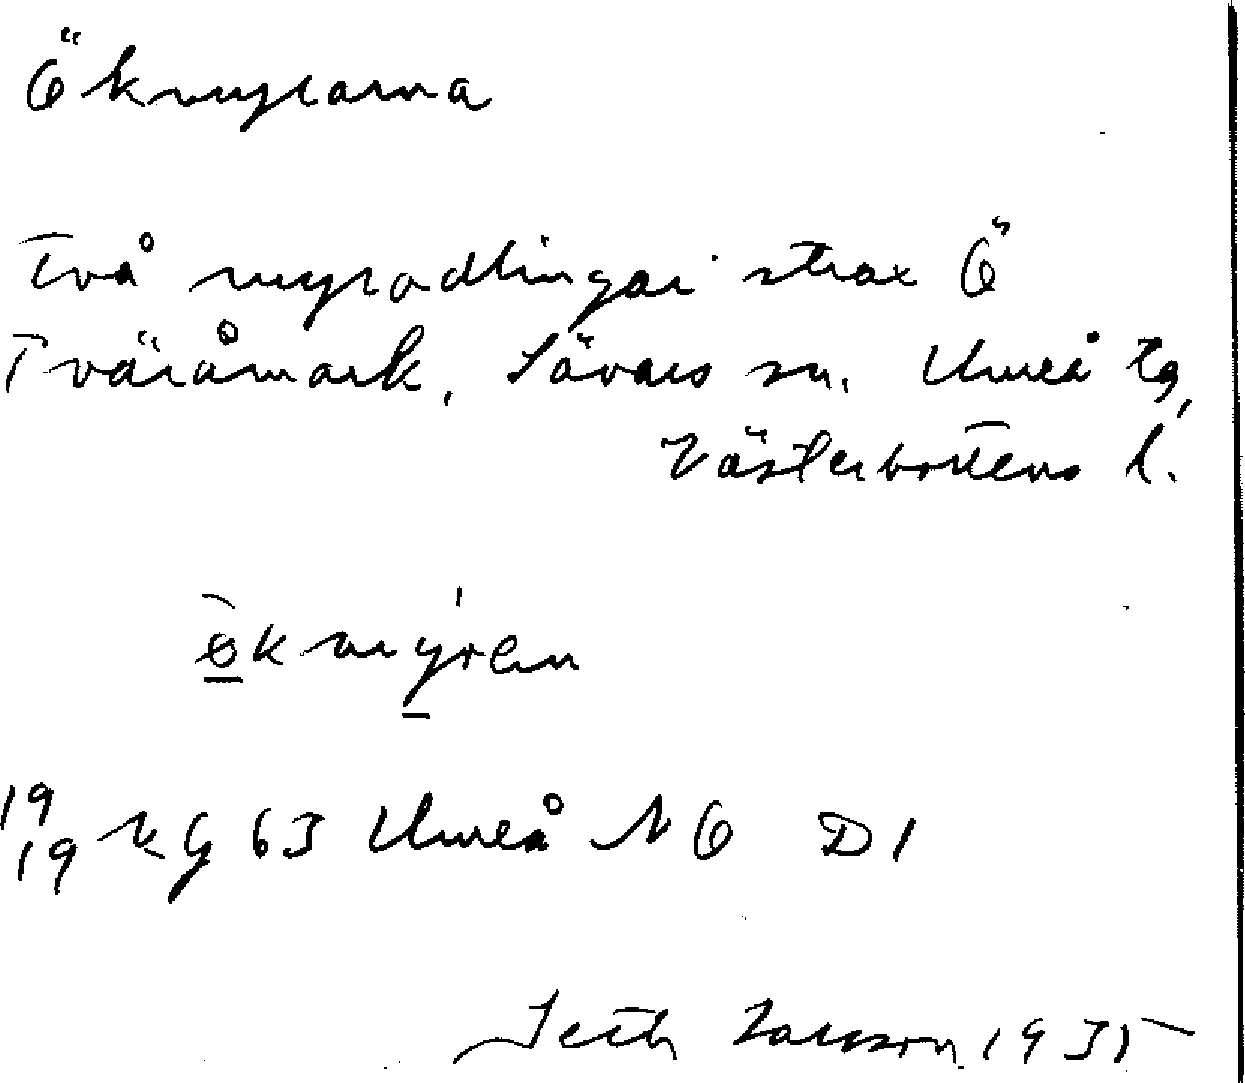 Ökmyrarna
Två myrodlingar strax Ö
Tväråmark, Sävars sn. Umeå tg,
Västerbottens l.
ökmyren
19
19 kg 63 Umeå NO D1
Seth Larsson 1935